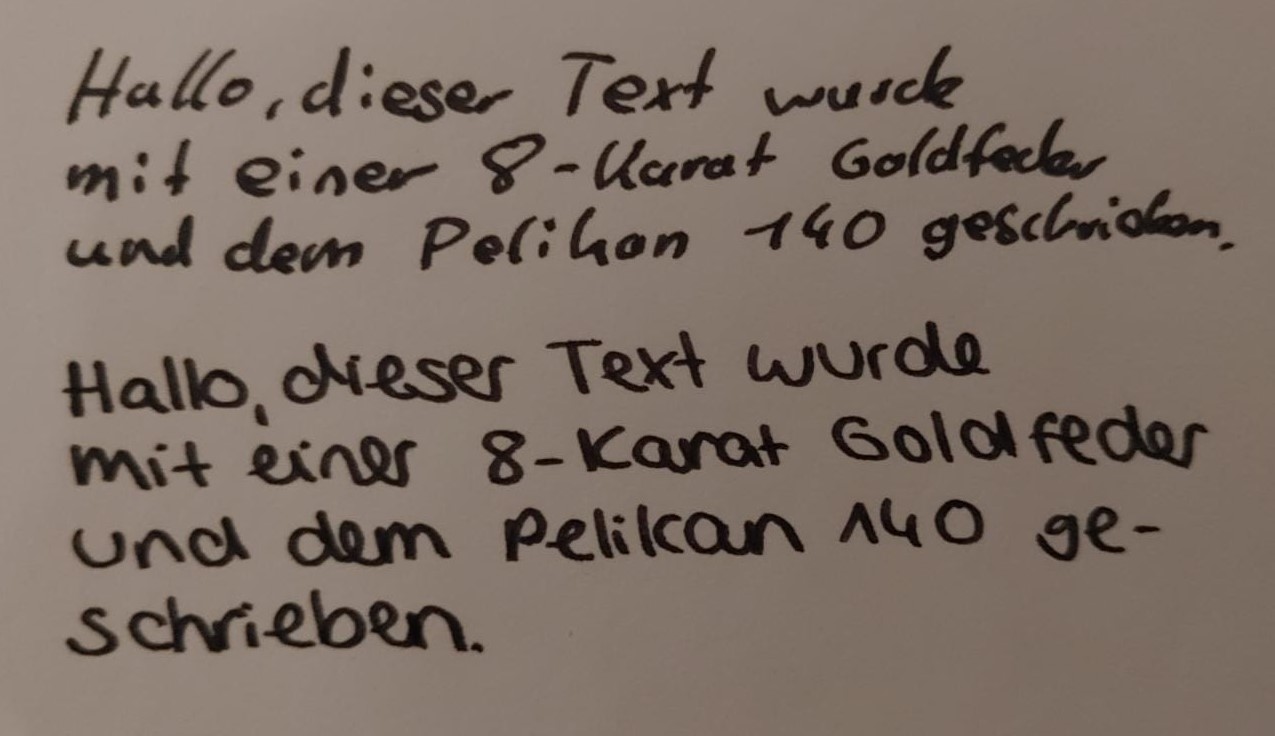 Hallo, dieser Text wurde
mit einer 8-Karat Goldfeder
und dem Pelikan 140 geschrieben.
Hallo, dieser Text wurde
mit einer 8-Karat Goldfeder
und dem Pelikan 140 ge-
schrieben.